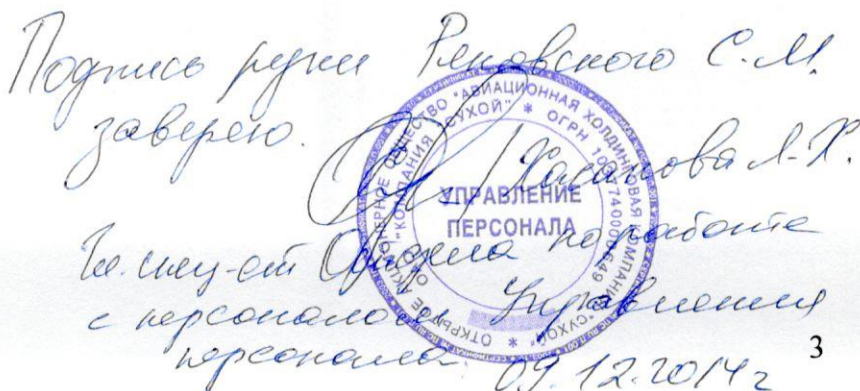 Подпись руки Рековского С.М.
заверяю.
/Хасанова Л.Х.
Гл. спец-ст Отдела по работе
с персоналом Управления
персонала. 09.12.2014г
ОТКРЫТОЕ АКЦИОНЕРНОЕ ОБЩЕСТВО "АВИАЦИОННАЯ ХОЛДИНГОВАЯ КОМПАНИЯ "СУХОЙ"
"КОМПАНИЯ "СУХОЙ" * ОГРН
УПРАВЛЕНИЕ
ПЕРСОНАЛА
3